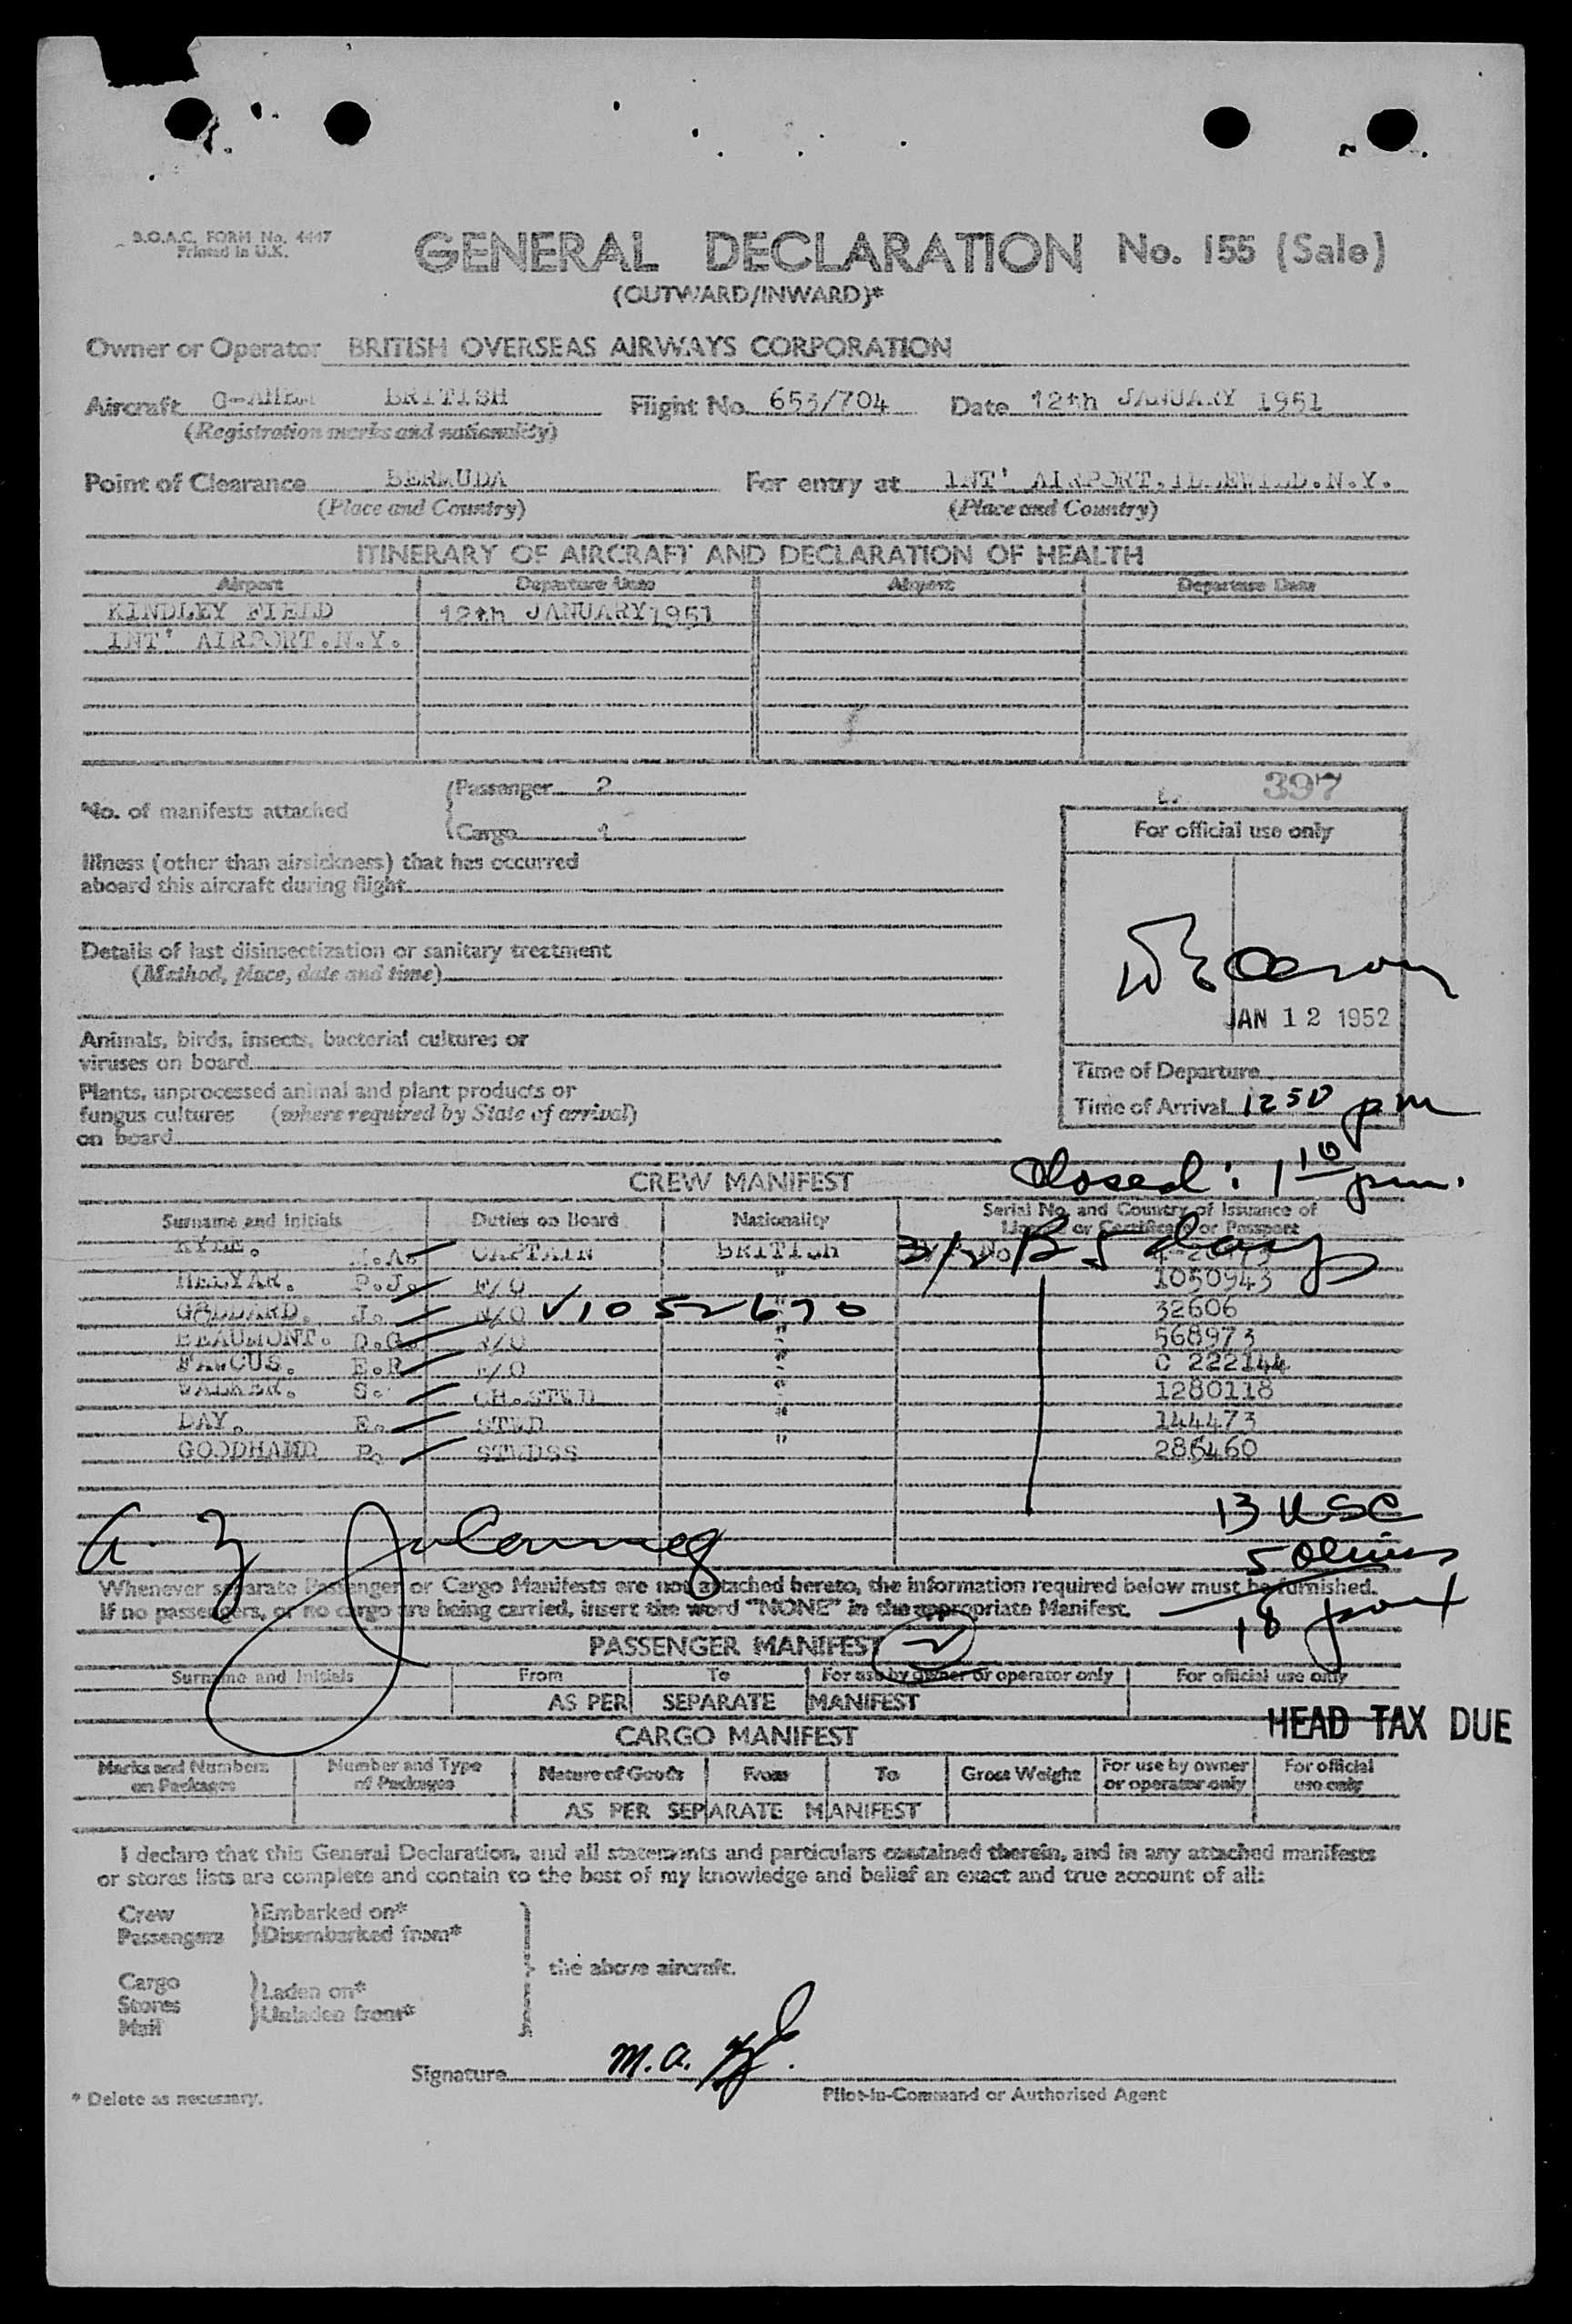 B.O.A.C. FORM No. 4447
Printed in U.K.
GENERAL DECLARATION No. 155 (Sale)
(OUTWARD/INWARD)*
Owner or Operator BRITISH OVERSEAS AIRWAYS CORPORATION
Aircraft BRITISH Flight No. 653/704 Date 12th JANUARY 1951
(Registration marks and nationality)
Point of Clearance BERMUDA For entry at INT' AIRPORT. IDLEWILD. N.Y.
(Place and Country) (Place and Country)
ITINERARY OF AIRCRAFT AND DECLARATION OF HEALTH
Airport Departure Date Airport Departure Date
KINDLEY FIELD 12th JANUARY 1951
INT' AIRPORT. N.Y.
397
No. of manifests attached
Passenger 2
Cargo 1
For official use only
Illness (other than airsickness) that has occurred
aboard this aircraft during flight
Details of last disinsectization or sanitary treatment
(Method, place, date and time)
JAN 12 1952
Animals, birds, insects, bacterial cultures or
viruses on board
Time of Departure
Plants, unprocessed animal and plant products or
fungus cultures (where required by State of arrival)
on board
Time of Arrival 1250 pm
Closed: 1 10 pm.
CREW MANIFEST
Surname and Initials Duties on Board Nationality Serial No. and Country of Issuance of
Licence or Certificate or Passport
J.A. CAPTAIN BRITISH 3/2 B 5 days
HELYAR. P.J. F/O " 1050943
GODDARD. J. N/O V1052670 " 32606
BEAUMONT. D.G. R/O " 568973
FAWCUS. E.R. " C 222144
WALKER. S. CH.STWD " 1280118
DAY. E. STWD " 144473
GOODHAND P. STWDSS " 286460
13 USC
5 aliens
18 pax
Whenever separate Passenger or Cargo Manifests are not attached hereto, the information required below must be furnished.
If no passengers, or no cargo are being carried, insert the word "NONE" in the appropriate Manifest.
PASSENGER MANIFEST 2
Surname and Initials From To For use by owner or operator only For official use only
AS PER SEPARATE MANIFEST
HEAD TAX DUE
CARGO MANIFEST
Marks and Numbers on Packages Number and Type of Packages Nature of Goods From To Gross Weight For use by owner or operator only For official use only
AS PER SEPARATE MANIFEST
I declare that this General Declaration, and all statements and particulars contained therein, and in any attached manifests
or stores lists are complete and contain to the best of my knowledge and belief an exact and true account of all:
Crew Embarked on*
Passengers Disembarked from*
the above aircraft.
Cargo
Stores Laden on*
Mail Unladen from*
Signature M.A.
* Delete as necessary. Pilot-in-Command or Authorised Agent